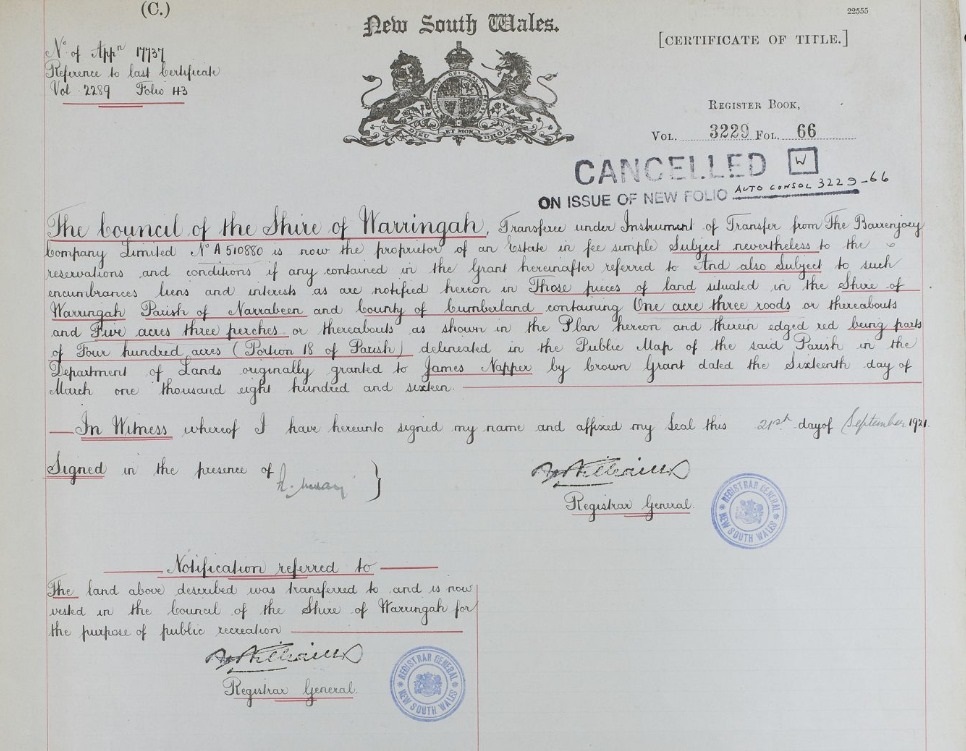 (C.)
22555
New South Wales.
[CERTIFICATE OF TITLE.]
No of Appn 17737
Reference to last Certificate
Vol 2289 Folio 43
DIEU ET MON DROIT
REGISTER BOOK,
VOL. 3229 FOL. 66
CANCELLED W
ON ISSUE OF NEW FOLIO AUTO CONSOL 3229-66
The Council of the Shire of Warringah, Transferee under Instrument of Transfer from The Barrenjoey
Company Limited No A 510880 is now the proprietor of an Estate in fee simple Subject nevertheless to the
reservations and conditions if any contained in the Grant hereinafter referred to And also Subject to such
encumbrances liens and interests as are notified hereon in Those pieces of land situated in the Shire of
Warringah Parish of Narrabeen and County of Cumberland containing One acre three roods or thereabouts
and Five acres three perches or thereabouts as shown in the Plan hereon and therein edged red being parts
of Four hundred acres (Portion 18 of Parish) delineated in the Public Map of the said Parish in the
Department of Lands originally granted to James Napper by Crown Grant dated the Sixteenth day of
March one thousand eight hundred and sixteen.
In Witness whereof I have hereunto signed my name and affixed my Seal this 21st day of September 1921.
Signed in the presence of }
Registrar General
REGISTRAR GENERAL
NEW SOUTH WALES
Notification referred to
The land above described was transferred to and is now
vested in the Council of the Shire of Warringah for
the purpose of public recreation
Registrar General
REGISTRAR GENERAL
NEW SOUTH WALES